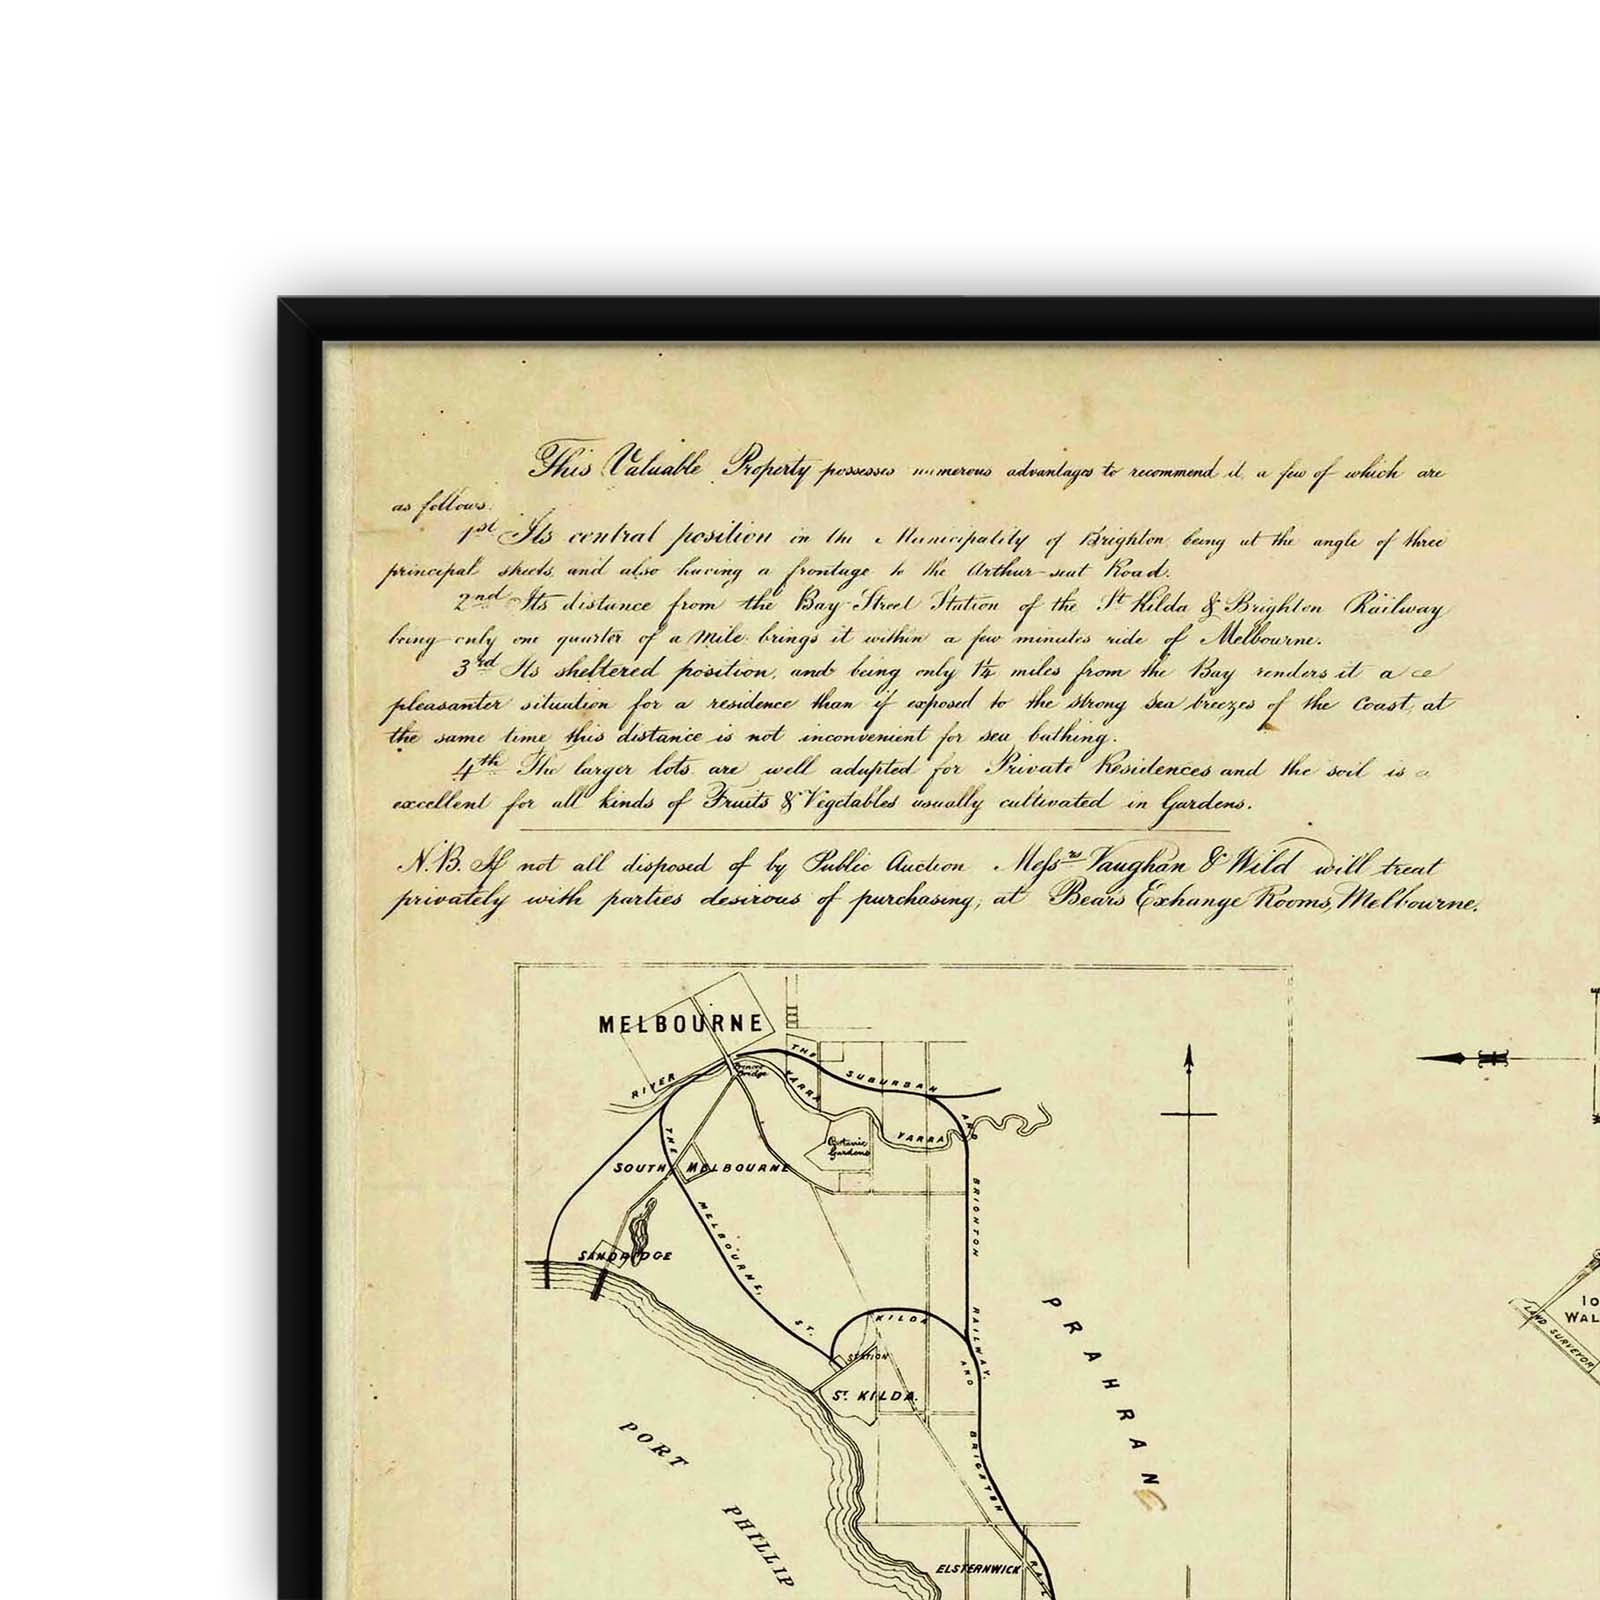 This Valuable Property possesses numerous advantages to recommend it, a few of which are
as follows.
1st Its central position in the Municipality of Brighton being at the angle of three
principal streets, and also having a frontage to the Arthur-seat Road.
2nd Its distance from the Bay-Street Station of the St Kilda & Brighton Railway
being only one quarter of a Mile brings it within a few minutes ride of Melbourne.
3rd Its sheltered position, and being only 1¼ miles from the Bay renders it a
pleasanter situation for a residence than if exposed to the strong sea breezes of the Coast, at
the same time this distance is not inconvenient for sea bathing.
4th The larger lots are well adapted for Private Residences and the soil is
excellent for all kinds of Fruits & Vegetables usually cultivated in Gardens.
N.B. If not all disposed of by Public Auction Messrs Vaughan & Wild will treat
privately with parties desirous of purchasing, at Bears Exhange Rooms, Melbourne.
MELBOURNE
Princes Bridge
RIVER YARRA YARRA
THE SUBURBAN AND BRIGHTON RAILWAY.
Botanic Gardens
SOUTH MELBOURNE
SANDRIDGE
THE MELBOURNE, ST. KILDA AND BRIGHTON
STATION
ST. KILDA.
PRAHRAN
PORT
PHILLIP
ELSTERNWICK
LAND SURVEYOR
WAL